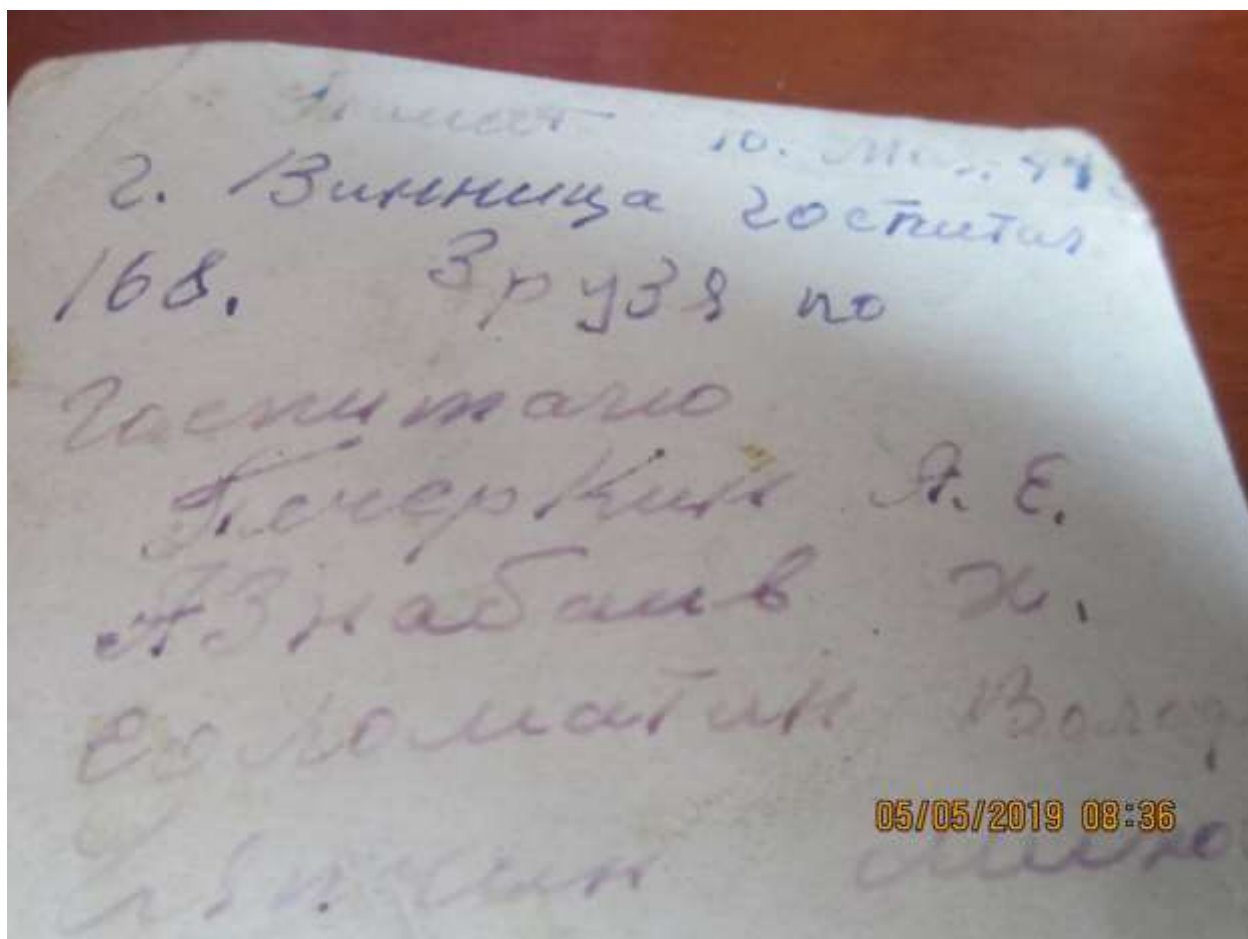 10.
г. Винница госпитал
168. Зрузя по
Гаспиталю
Печеркин А. Е.
Азнабаив Х.
Соломатин Волод
05/05/2019 08:36